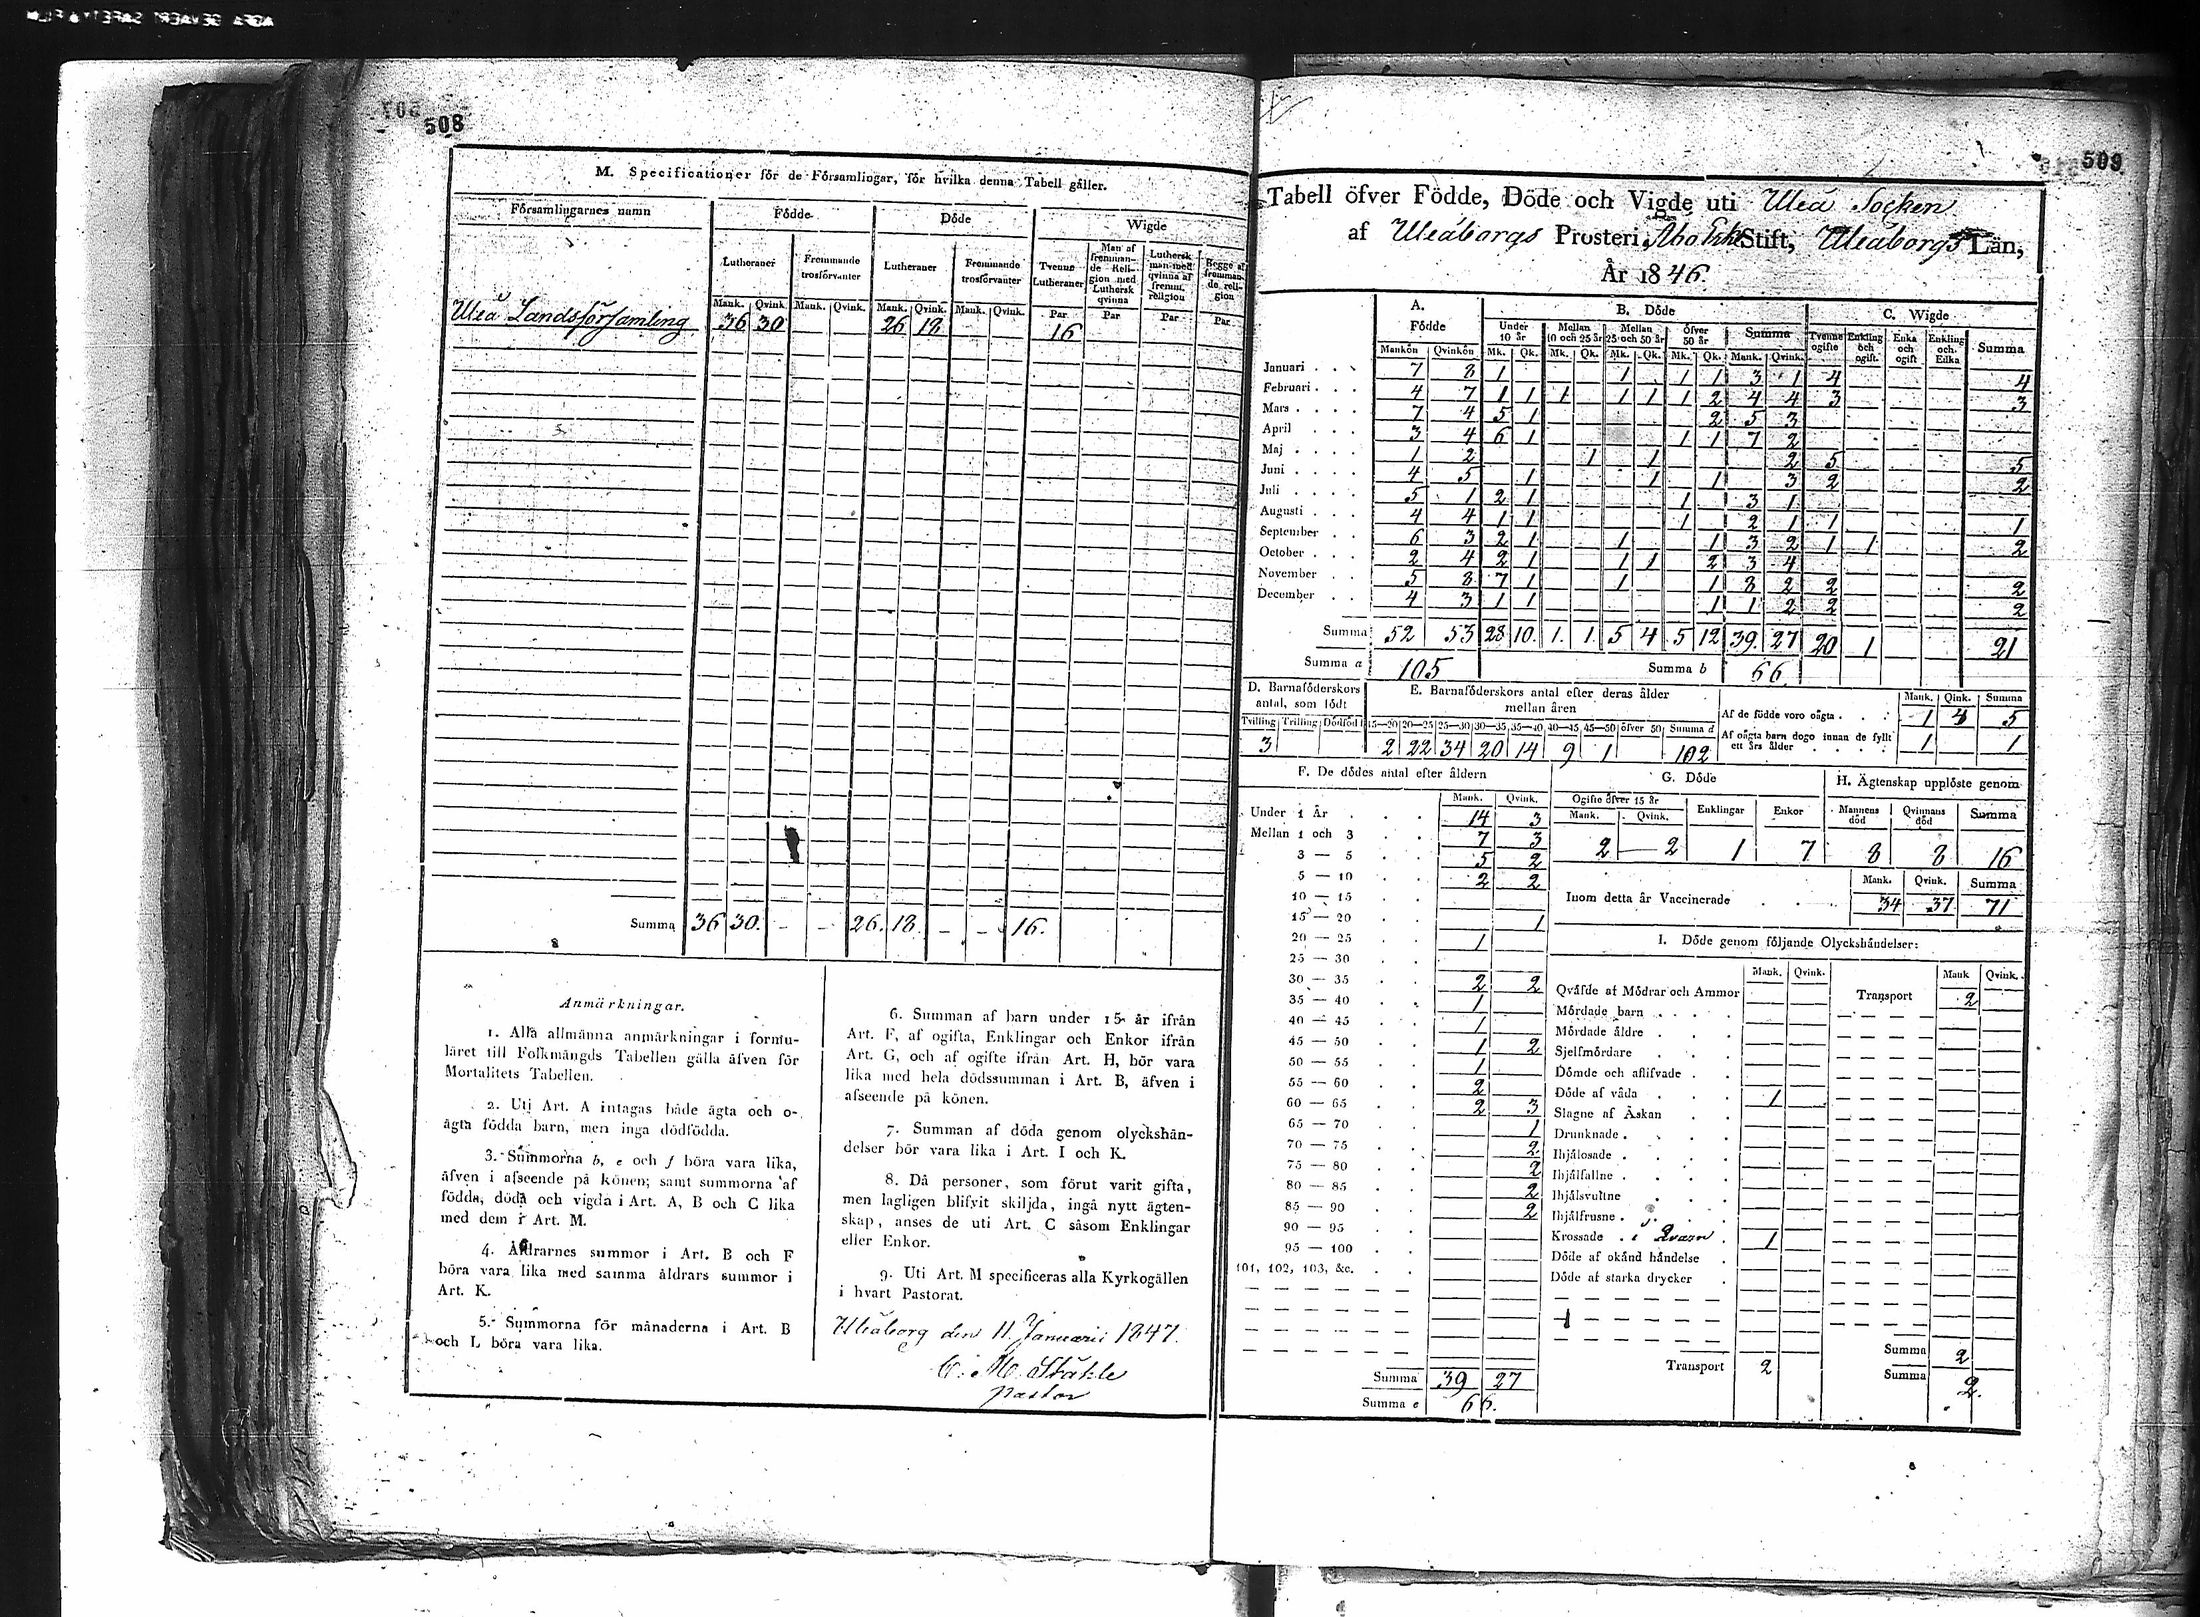 508
M. Specificationer för de Församlingar, för hvilka denna Tabell gäller.
Församlingarnes namn Födde Döde Wigde
Lutheraner Fremmande trosförvanter Lutheraner Fremmande trosförvanter Tvenne Lutheraner Man af fremmande Religion med Luthersk qvinna Luthersk man med qvinna af fremm. religion Begge af fremmande religion
Mank. Qvink. Mank. Qvink. Mank. Qvink. Mank. Qvink. Par Par Par Par
Uleå Landsförsamling 36 30 26 18 16
Summa 36 30. - - 26. 18. - - 16.
Anmärkningar.
1. Alla allmänna anmärkningar i formu-
läret till Folkmängds Tabellen gälla äfven för
Mortalitets Tabellen.
2. Uti Art. A intagas både ägta och o-
ägta födda barn, men inga dödfödda.
3. Summorna b, e och f böra vara lika,
äfven i afseende på könen; samt summorna af
födda, döda och vigda i Art. A, B och C lika
med dem i Art. M.
4. Åldrarnes summor i Art. B och F
böra vara lika med samma åldrars summor i
Art. K.
5. Summorna för månaderna i Art. B
och L böra vara lika.
6. Summan af barn under 15 år ifrån
Art. F, af ogifta, Enklingar och Enkor ifrån
Art. G, och af ogifte ifrån Art. H, bör vara
lika med hela dödssumman i Art. B, äfven i
afseende på könen.
7. Summan af döda genom olyckshän-
delser bör vara lika i Art. I och K.
8. Då personer, som förut varit gifta,
men lagligen blifvit skiljda, ingå nytt ägten-
skap, anses de uti Art. C såsom Enklingar
eller Enkor.
9. Uti Art. M specificeras alla Kyrkogällen
i hvart Pastorat.
Uleåborg den 11. Januarii 1847.
C. M. Ståhle
pastor
509
Tabell öfver Födde, Döde och Vigde uti Uleå Socken
af Uleåborgs Prosteri, Åbo Stift, Uleåborgs Län,
År 1846.
A. Födde B. Döde C. Wigde
Under 10 år Mellan 10 och 25 år Mellan 25 och 50 år Öfver 50 år Summa Tvenne ogifte Enkling och ogift Enka och ogift Enkling och Enka Summa
Mankön Qvinkön Mk. Qk. Mk. Qk. Mk. Qk. Mk. Qk. Mank. Qvink.
Januari 7 8 1 1 1 1 3 1 4 4
Februari 4 7 1 1 1 1 1 1 2 4 4 3 3
Mars 7 4 5 1 2 5 3
April 3 4 6 1 1 1 7 2
Maj 1 2 1 1 2 5 5
Juni 4 5 1 1 1 3 2 2
Juli 5 1 2 1 1 3 1
Augusti 4 4 1 1 1 2 1 1 1
September 6 3 2 1 1 1 3 2 1 1 2
October 2 4 2 1 1 1 2 3 4
November 5 8 7 1 1 1 8 2 2 2
December 4 3 1 1 1 1 2 2 2
Summa 52 53 28 10. 1. 1. 5 4 5 12 39. 27 20 1 21
Summa a 105 Summa b 66
D. Barnaföderskors antal, som födt
Tvilling Trilling Dödfödt
3
E. Barnaföderskors antal efter deras ålder mellan åren
15—20 20—25 25—30 30—35 35—40 40—45 45—50 öfver 50 Summa d
2 22 34 20 14 9 1 102
Mank. Qink. Summa
Af de födde voro oägta 1 4 5
Af oägta barn dogo innan de fyllt ett års ålder 1 1
F. De dödes antal efter åldern
Mank. Qvink.
Under 1 År 14 3
Mellan 1 och 3 7 3
3 — 5 5 2
5 — 10 2 2
10 — 15
15 — 20 1
20 — 25 1
25 — 30
30 — 35 2 2
35 — 40 1
40 — 45 1
45 — 50 1 2
50 — 55 1
55 — 60 2
60 — 65 2 3
65 — 70 1
70 — 75 2
75 — 80 2
80 — 85 2
85 — 90 2
90 — 95
95 — 100
101, 102, 103, &c.
Summa 39 27
Summa e 66.
G. Döde
Ogifte öfver 15 år Enklingar Enkor
Mank. Qvink.
2 2 1 7
H. Ägtenskap upplöste genom
Mannens död Qvinnans död Summa
8 8 16
Mank. Qvink. Summa
Inom detta år Vaccinerade 34 37 71
I. Döde genom följande Olyckshändelser:
Mank. Qvink. Mank Qvink.
Qväfde af Mödrar och Ammor
Mördade barn
Mördade äldre
Sjelfmördare
Dömde och aflifvade
Döde af våda 1
Slagne af Åskan
Drunknade
Ihjälosade
Ihjälfallne
Ihjälsvultne
Ihjälfrusne
Krossade i Qvarn 1
Döde af okänd händelse
Döde af starka drycker
Transport 2
Transport 2
Summa 2
Summa 2.